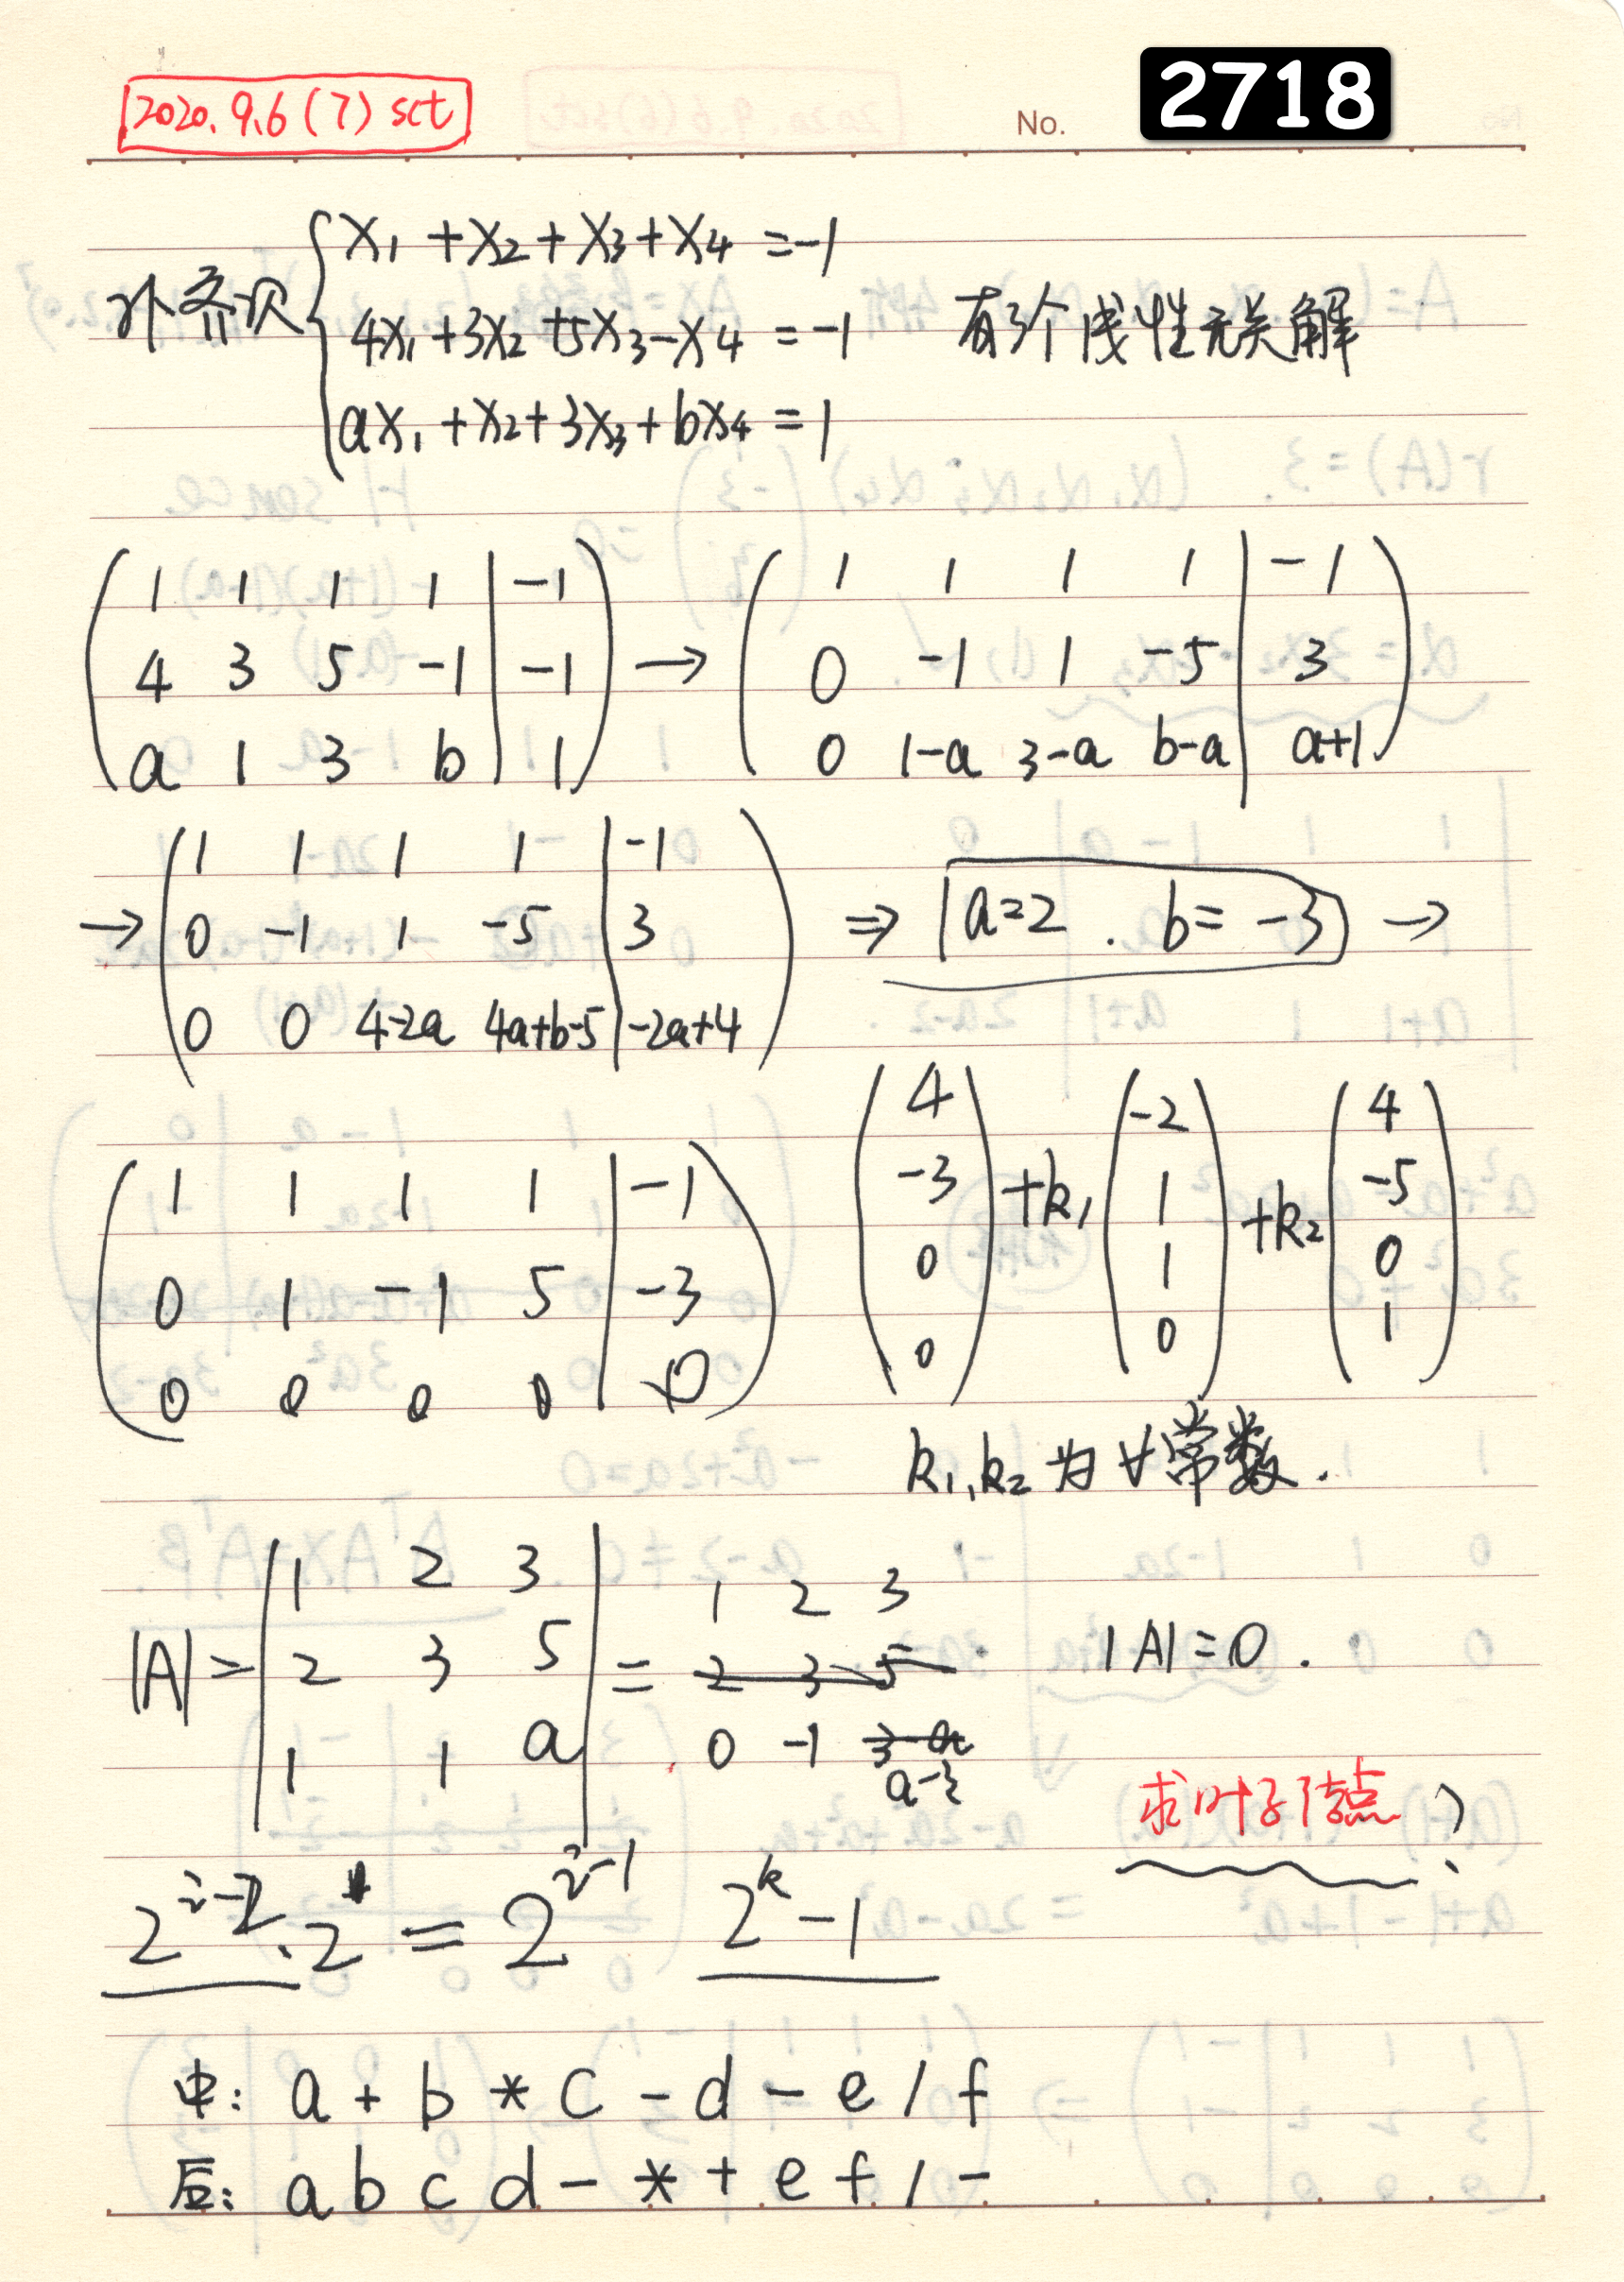 2020.9.6(7) sct
No. 2718
外齐次
x₁ + x₂ + x₃ + x₄ = -1
4x₁ + 3x₂ + 5x₃ - x₄ = -1 有3个线性无关解
ax₁ + x₂ + 3x₃ + bx₄ = 1
1 1 1 1 | -1
4 3 5 -1 | -1
a 1 3 b | 1
→
1 1 1 1 | -1
0 -1 1 -5 | 3
0 1-a 3-a b-a | a+1
→
1 1 1 1 | -1
0 -1 1 -5 | 3
0 0 4-2a 4a+b-5 | -2a+4
⇒ a=2 . b= -3 →
1 1 1 1 | -1
0 1 -1 5 | -3
0 0 0 0 | 0
(4 -3 0 0) + k₁ (-2 1 1 0) + k₂ (4 -5 0 1)
k₁, k₂ 为 ∀ 常数.
|A| =
1 2 3
2 3 5
1 1 a
=
1 2 3
2 3 5
0 -1 3-a
a-3
|A|=0.
求叶子结点?
2^(i-2) · 2 = 2^(i-1) 2^k - 1
中: a + b * c - d - e / f
后: a b c d - * + e f / -